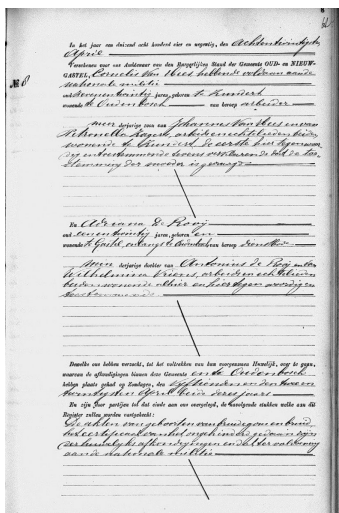 In het jaar een duizend acht honderd vier en negentig, den Achtentwintigsten
April
Verschenen voor ons Ambtenaar van den Burgerlijken Stand der Gemeente OUD- en NIEUW-
GASTEL, Cornelis Van Hees hebbende voldaan aan de
nationale militie
No 8
oud zevenentwintig jaren, geboren te Zundert
wonende te Oudenbosch van beroep arbeider
meer derjarige zoon van Johannes Van Hees en van
Petronella arbeiders echtelieden beiden
wonende te Zundert, de eerste hier tegenwoor
dig en toestemmende tevens verklarende dat de toe
stemming der moeder is gevraagd
En Adriana De Rooij
oud eenentwintig jaren, geboren en
wonende te Gastel, onlangs te Oudenbosch van beroep dienstbode
min derjarige dochter van Antonius de Rooij en van
Wilhelmina arbeiders echtelieden
beiden wonende alhier en hier tegenwoordig en
toestemmende
Dewelke ons hebben verzocht, tot het voltrekken van hun voorgenomen Huwelijk, over te gaan,
waarvan de afkondigingen binnen deze Gemeente en te Oudenbosch
hebben plaats gehad op Zondagen, den vijftienden en den twee en
twintigsten April beide dezes jaars
En zijn door partijen tot dat einde aan ons overgelegd, de navolgende stukken welke aan dit
Register zullen worden vastgehecht:
De akten van geboorte van bruidegom en bruid,
het certificaat van het onverhinderd gedaan zijn
der huwelijksafkondigingen en dat der voldoening
aan de nationale militie